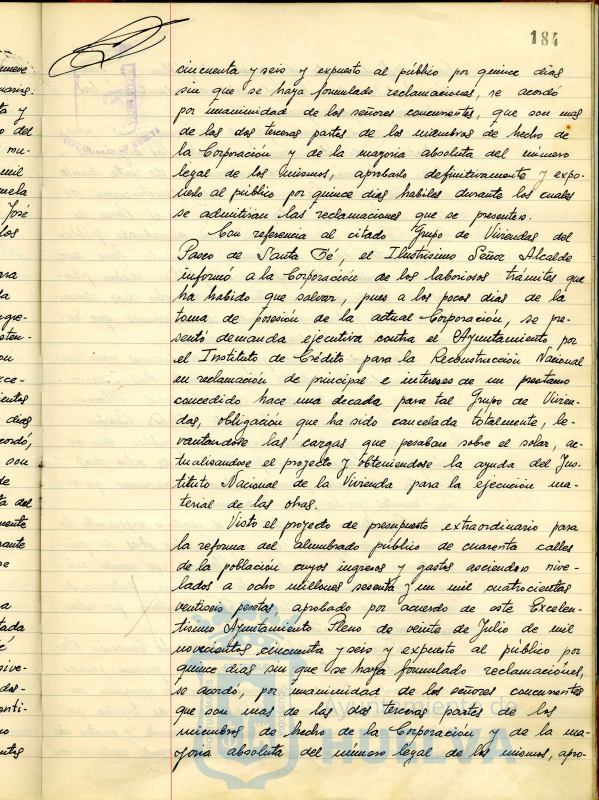 184
cincuenta y seis y expuesto al público por quince dias
sin que se haya formulado reclamaciones, se acordó
por unanimidad de los señores concurrentes, que son mas
de las dos terceras partes de los miembros de hecho de
la Corporación y de la mayoria absoluta del número
legal de los mismos, aprobarlo definitivamente y expo-
nerlo al público por quince dias habiles durante los cuales
se admitiran las reclamaciones que se presenten.
Con referencia al citado Grupo de Viviendas del
Paseo de Santa Fé, el Ilustrisimo Señor Alcalde
informó a la Corporación de los laboriosos trámites que
ha habido que salvar, pues a los pocos dias de la
toma de posesión de la actual Corporación, se pre-
sentó demanda ejecutiva contra el Ayuntamiento por
el Instituto de Crédito para la Reconstrucción Nacional
en reclamación de principal e intereses de un prestamo
concedido hace una decada para tal Grupo de Vivien-
das, obligación que ha sido cancelada totalmente, le-
vantandose las cargas que pesaban sobre el solar, ac-
tualisandose el proyecto y obteniendose la ayuda del Ins-
tituto Nacional de la Vivienda para la ejecución ma-
terial de las obras.
Visto el proyecto de presupuesto extraordinario para
la reforma del alumbrado público de cuarenta calles
de la población cuyos ingresos y gastos ascienden nive-
lados a ocho millones sesenta y un mil cuatrocientas
ventiseis pesetas, aprobado por acuerdo de este Excelen-
tisimo Ayuntamiento Pleno de veinte de Julio de mil
novecientos cincuenta y seis y expuesto al público por
quince dias sin que se haya formulado reclamaciones,
se acordó, por unanimidad de los señores concurrentes
que son mas de las dos terceras partes de los
miembros de hecho de la Corporación y de la ma-
yoria absoluta del número legal de los mismos, apro-
Ayuntamiento de
HUELVA